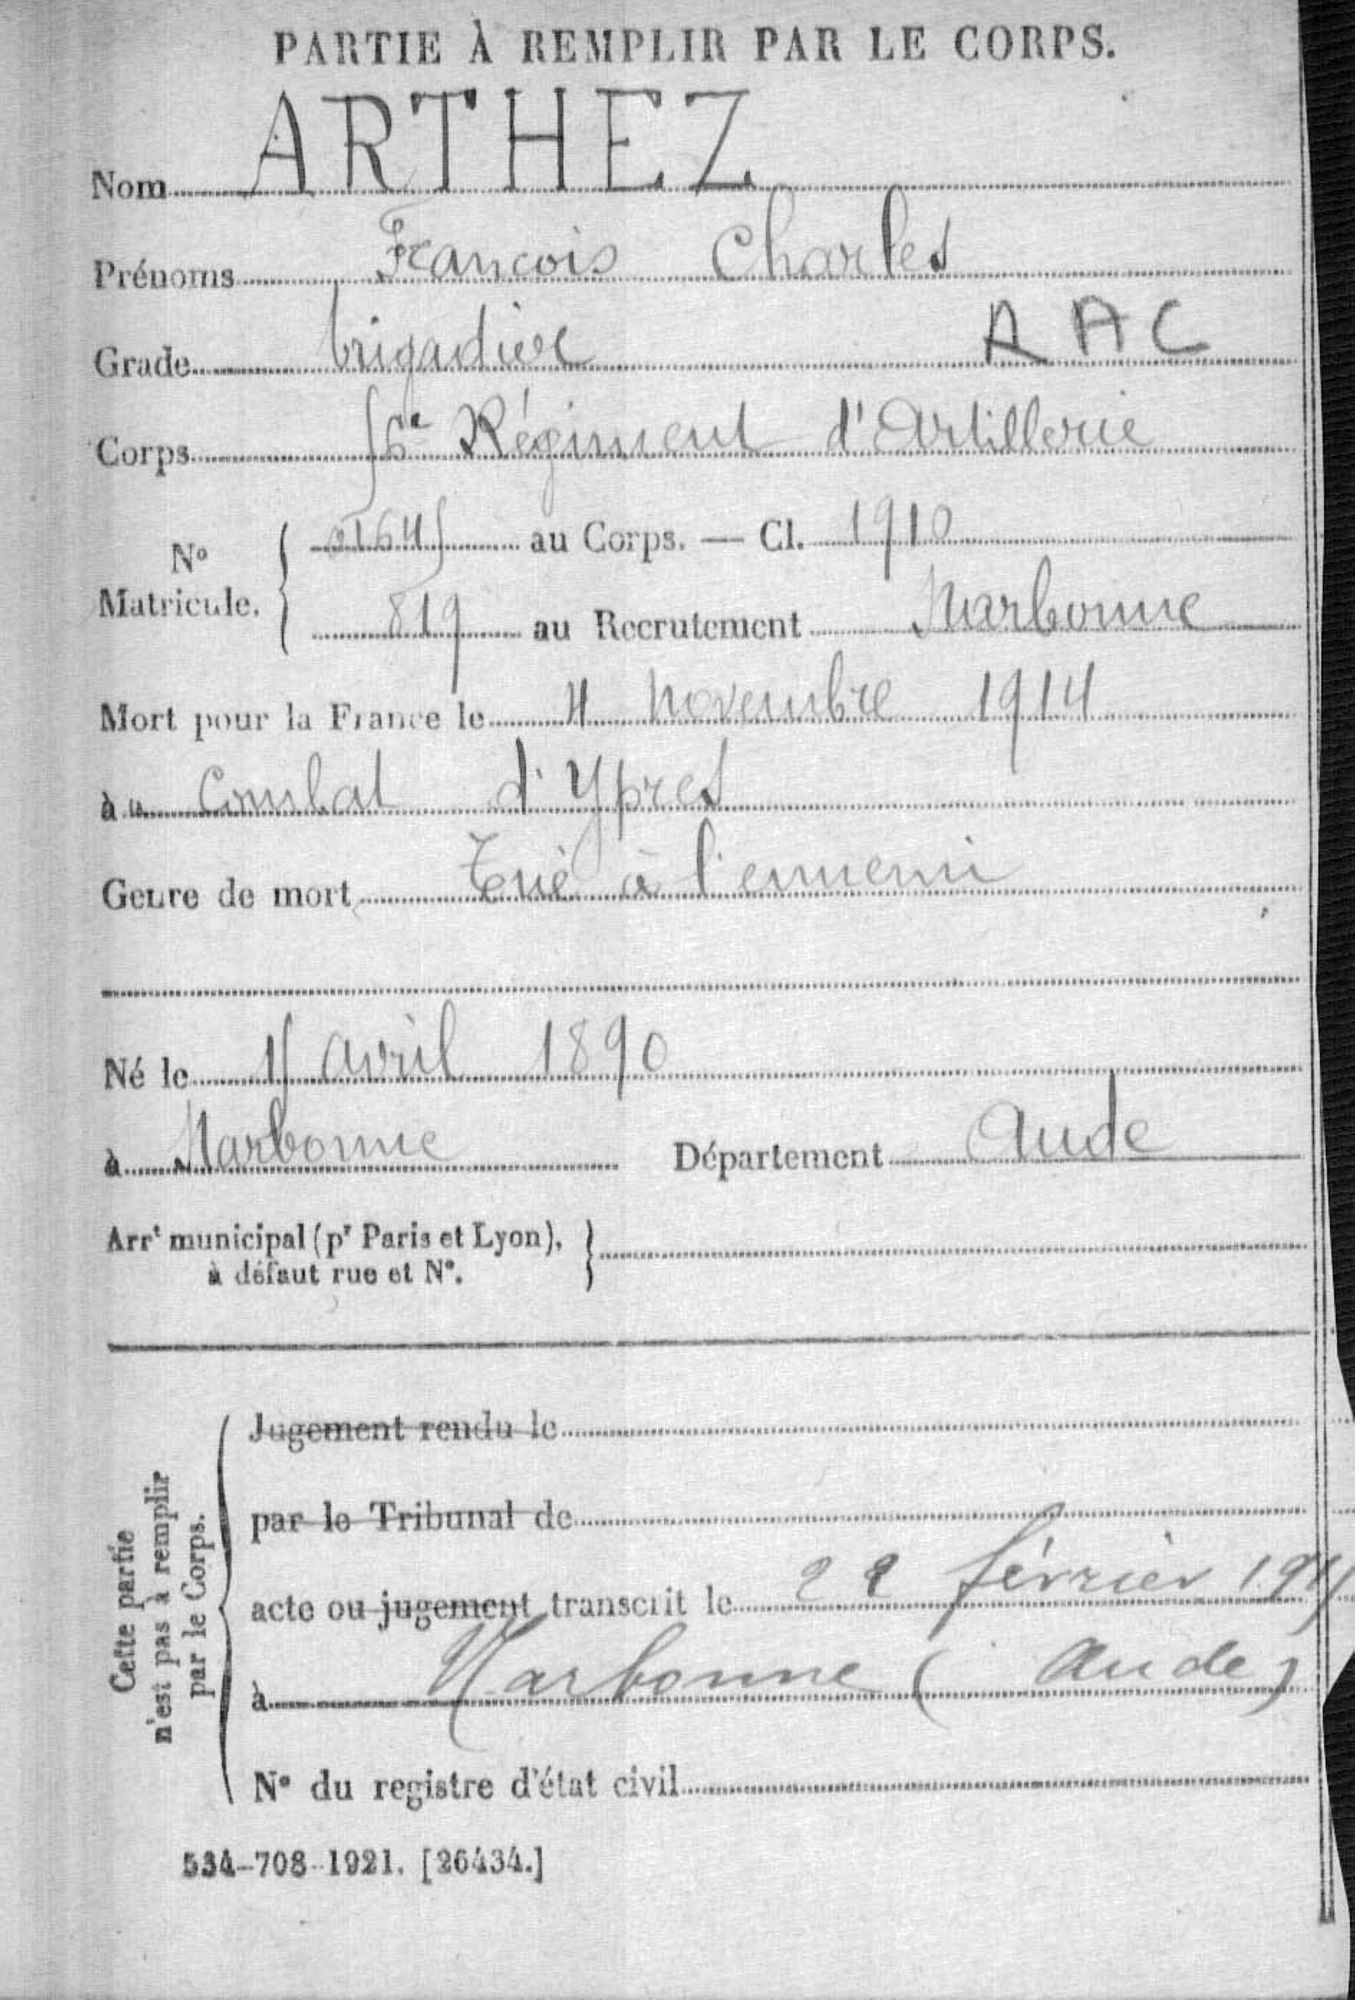 PARTIE À REMPLIR PAR LE CORPS.
Nom ARTHEZ
Prénoms François Charles
Grade brigadier RAC
Corps 56e Régiment d'Artillerie
No Matricule. { 01645 au Corps. — Cl. 1910
819 au Recrutement Narbonne
Mort pour la France le 4 novembre 1914
à u Combat d'Ypres
Genre de mort Tué à l'ennemi
Né le 15 avril 1890
à Narbonne Département Aude
Arrt municipal (pr Paris et Lyon), }
à défaut rue et No.
Cette partie
n'est pas à remplir
par le Corps.
Jugement rendu le
par le Tribunal de
acte ou jugement transcrit le 22 février
à Narbonne (Aude)
No du registre d'état civil
534-708-1921. [26434.]